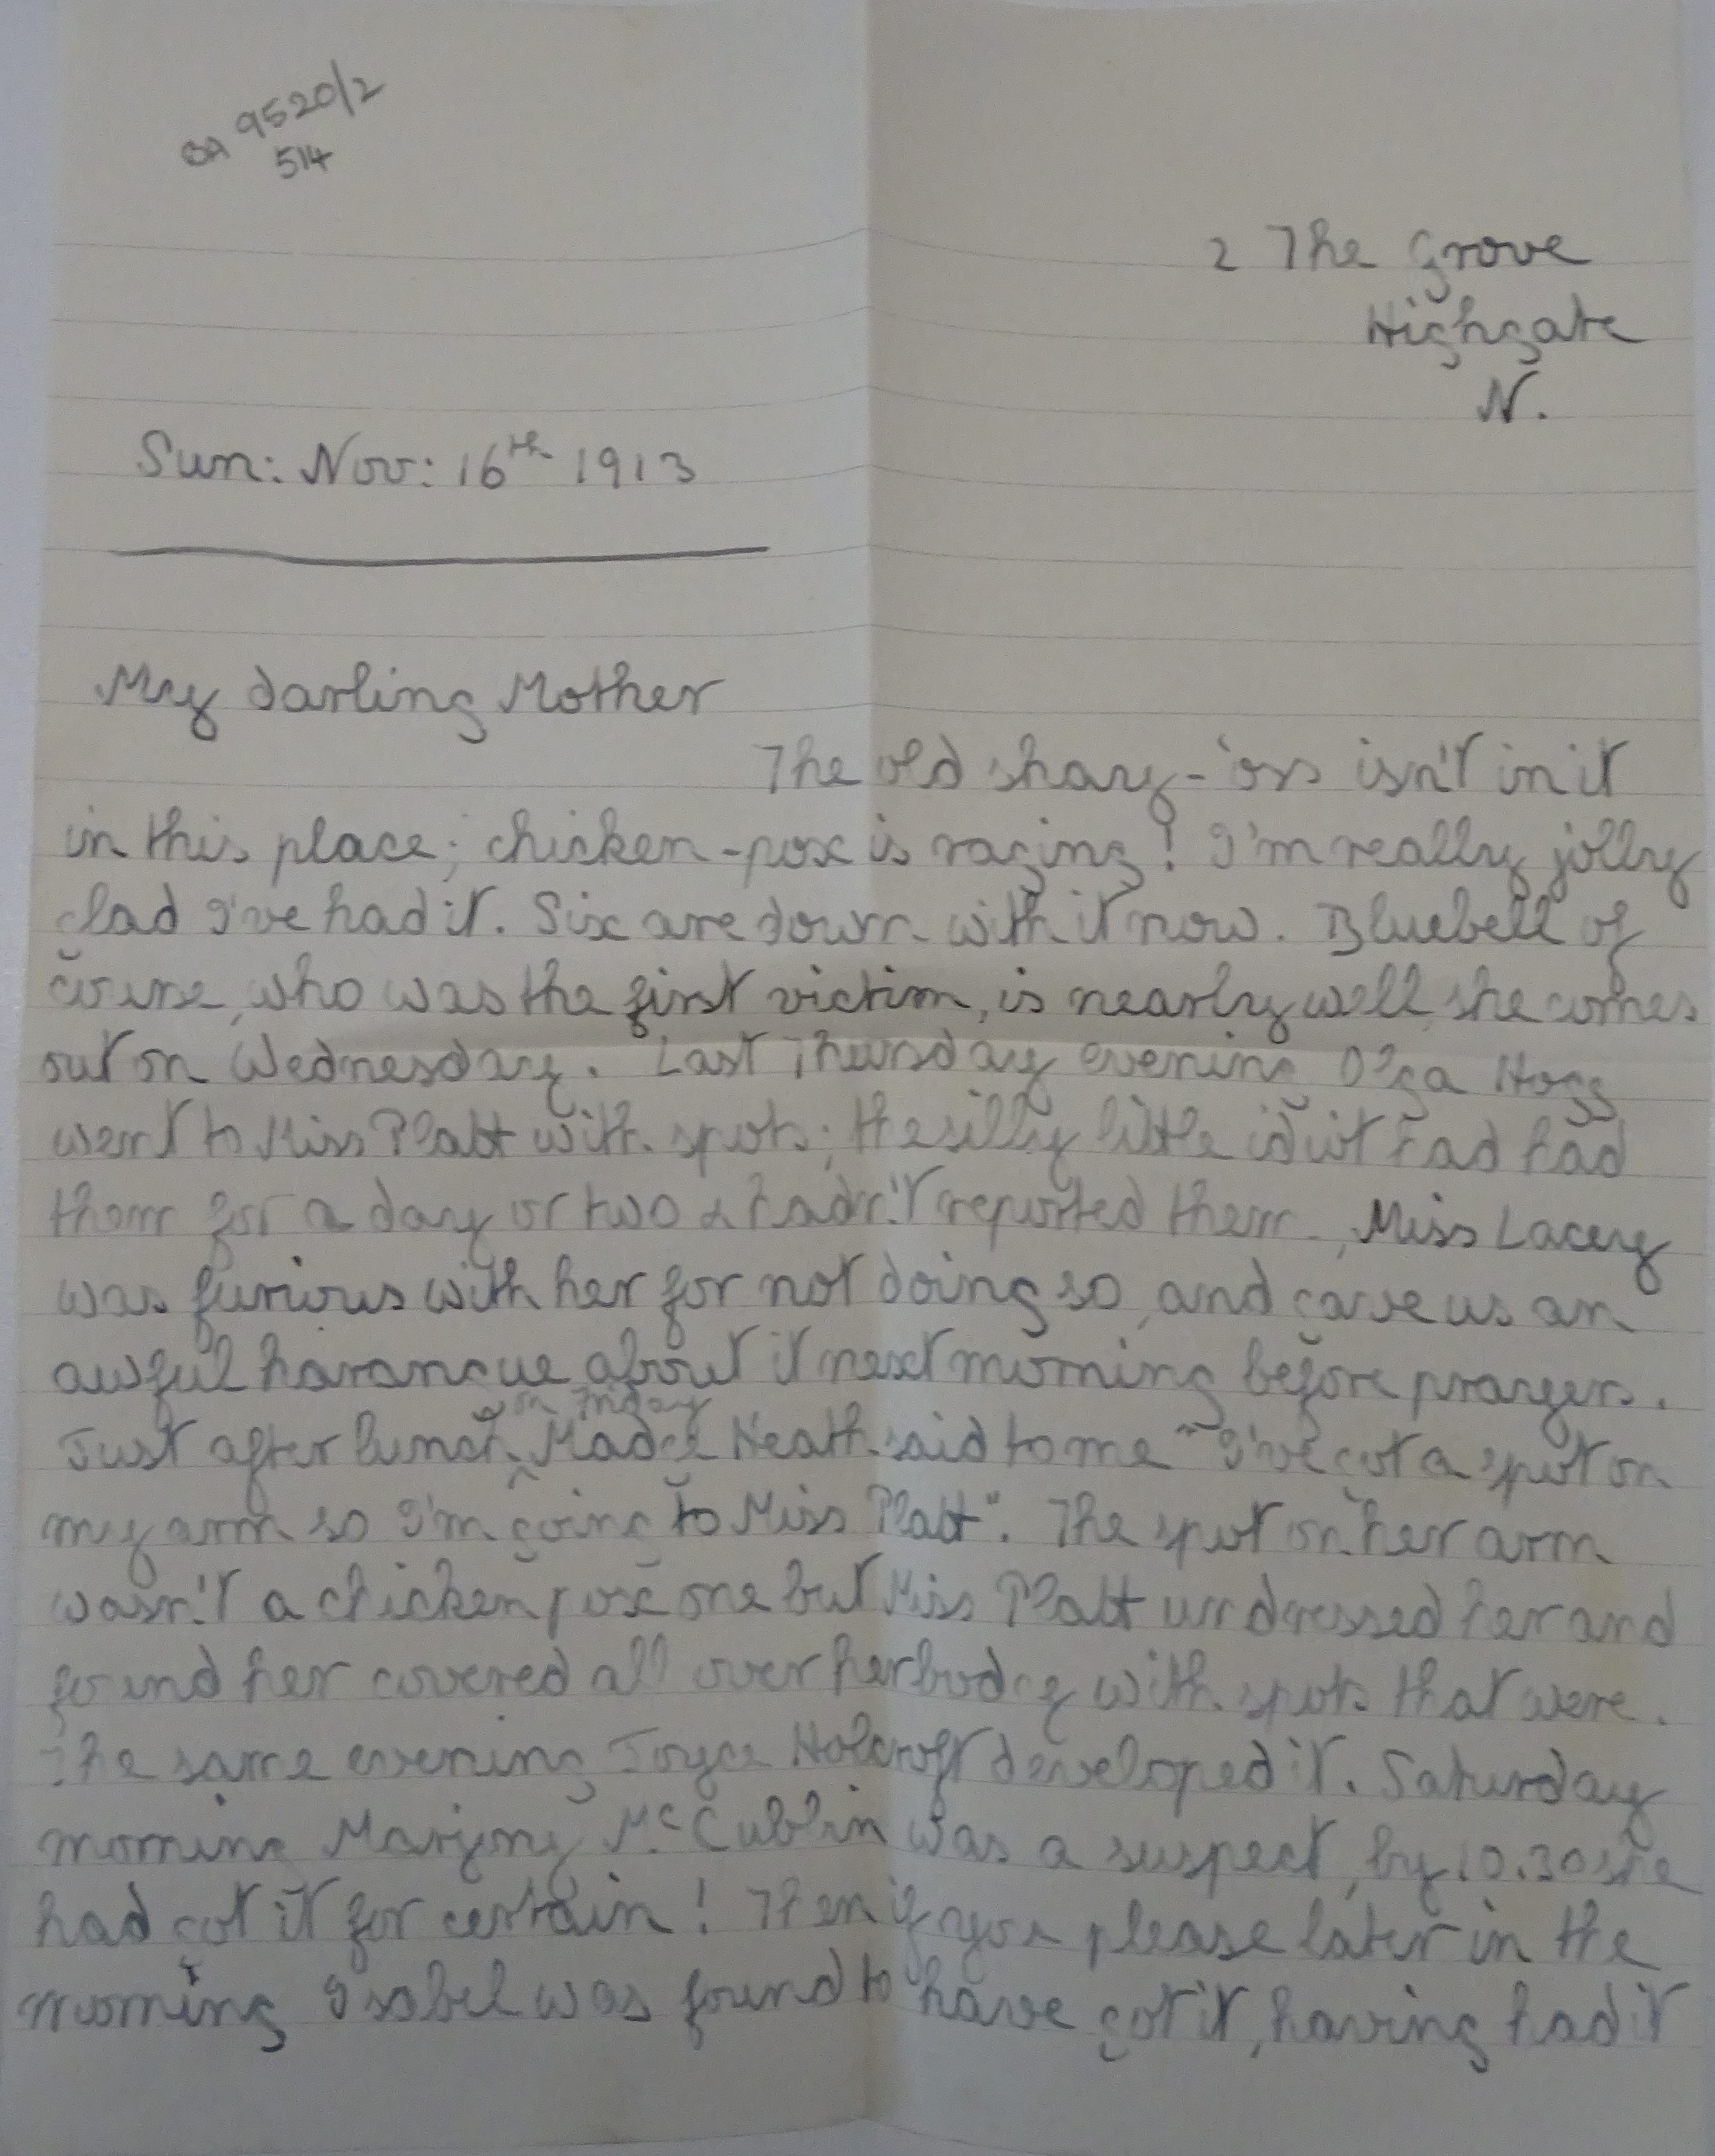 BA 9520/2
514
2 The Grove
Highgate
N.
Sun: Nov: 16th 1913
My darling Mother
The old shay-'oss isn't in it
in this place; chicken-pox is raging! I'm really jolly
glad I've had it. Six are down with it now. Bluebell of
course, who was the first victim, is nearly well, she comes
out on Wednesday. Last Thursday evening Olga Hogg
went to Miss Platt with spots; the silly little idiot had had
them for a day or two & hadn't reported them. Miss Lacey
was furious with her for not doing so, and gave us an
awful harangue about it next morning before prayers.
on Friday
Just after lunch Madge Heath said to me "I've got a spot on
my arm so I'm going to Miss Platt". The spot on her arm
wasn't a chicken pox one but Miss Platt undressed her and
found her covered all over her body with spots that were.
The same evening Joyce Holcroft developed it. Saturday
morning Marjory McCubbin was a suspect, by 10.30 she
had got it for certain! Then if you please later in the
morning Isabel was found to have got it, having had it